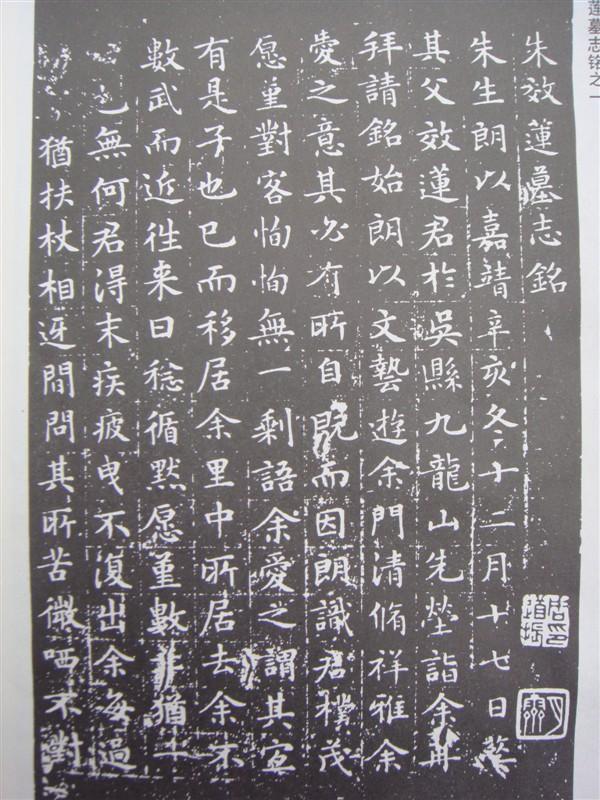 莲墓志铭之一
朱效蓮墓志銘
朱生朗以嘉靖辛亥冬十二月十七日葬
其父效蓮君於吳縣九龍山先塋詣余再
拜請銘始朗以文藝遊余門清脩祥雅余
愛之意其必有所自既而因朗識君樸茂
愿堇對客恂恂無一剩語余愛之謂其宜
有是子也已而移居余里中所居去余不
數武而近往来日稔循默愿堇數年猶一
也無何君淂末疾疲曳不復出余每過
猶扶杖相迓間問其所苦微哂不對
周印道振